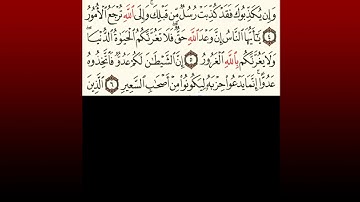 وَإِن يُكَذِّبُوكَ فَقَدْ كُذِّبَتْ رُسُلٌ مِّن قَبْلِكَ ۚ وَإِلَى اللَّهِ تُرْجَعُ الْأُمُورُ
۝٤ يَٰٓأَيُّهَا النَّاسُ إِنَّ وَعْدَ اللَّهِ حَقٌّ ۖ فَلَا تَغُرَّنَّكُمُ الْحَيَوٰةُ الدُّنْيَا ۖ
وَلَا يَغُرَّنَّكُم بِاللَّهِ الْغَرُورُ ۝٥ إِنَّ الشَّيْطَٰنَ لَكُمْ عَدُوٌّ فَاتَّخِذُوهُ
عَدُوًّا ۚ إِنَّمَا يَدْعُوا۟ حِزْبَهُۥ لِيَكُونُوا۟ مِنْ أَصْحَٰبِ السَّعِيرِ ۝٦ الَّذِينَ